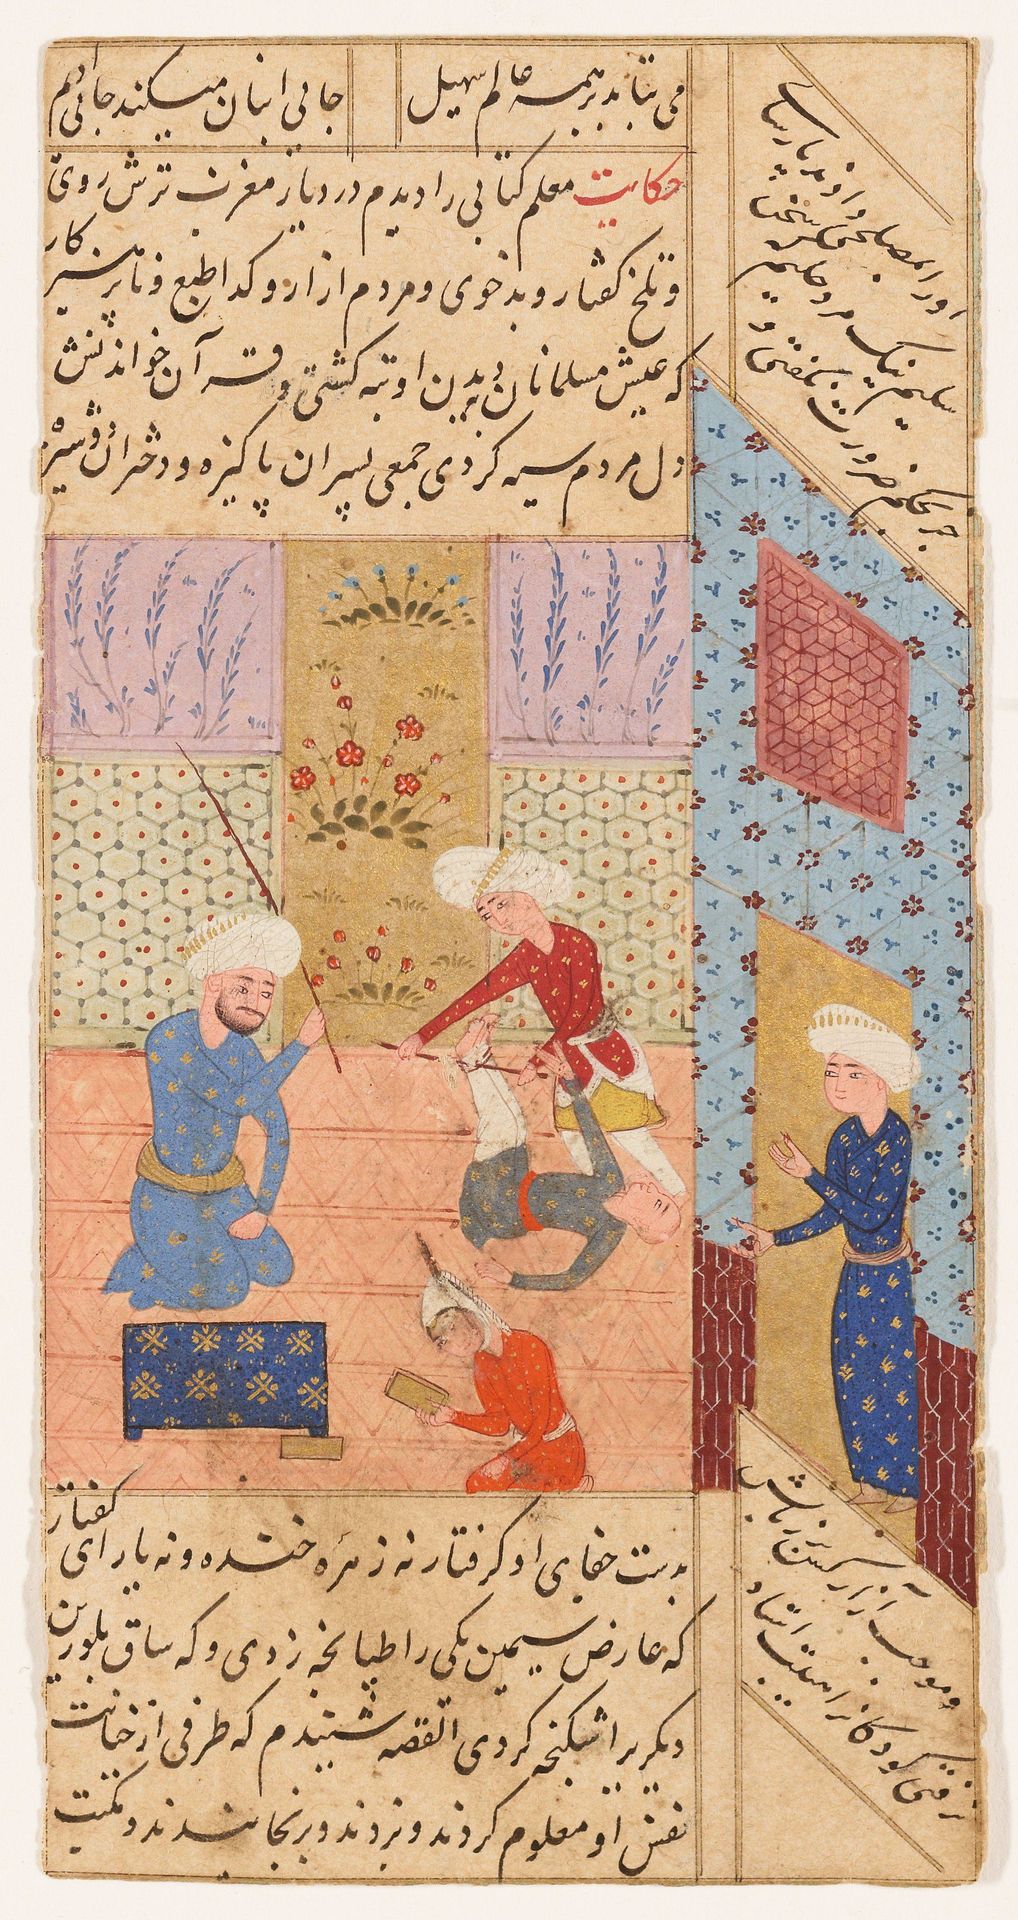 می تابد بر همه عالم سهیل
جائی انبان میکند جائی ادیم
حکایت معلم کتابی را دیدم در دیار مغرب ترش روی
و تلخ گفتار و بد خوی و مردم ازار و کدا طبع و ناپرهیز کار
که عیش مسلمانان بدیدن او تبه گشتی و قرآن خواندنش
دل مردم سیه کردی جمعی پسران پاکیزه و دختران دوشیزه
بدست جفای او گرفتار نه زهره خنده و نه یارای گفتار
که عارض سیمین یکی را طپانچه زدی و که ساق بلورین
دیگریرا شکنجه کردی القصه شنیدم که طرفی از خیانت
نفس او معلوم کردند و بزدند و برنجانیدند و مکتب
اورا بمصلحی
سلیم نیک مرد حلیم
جز بحکم ضرورت نگفتی و
نرفتی کودکانرا هیبت استاد